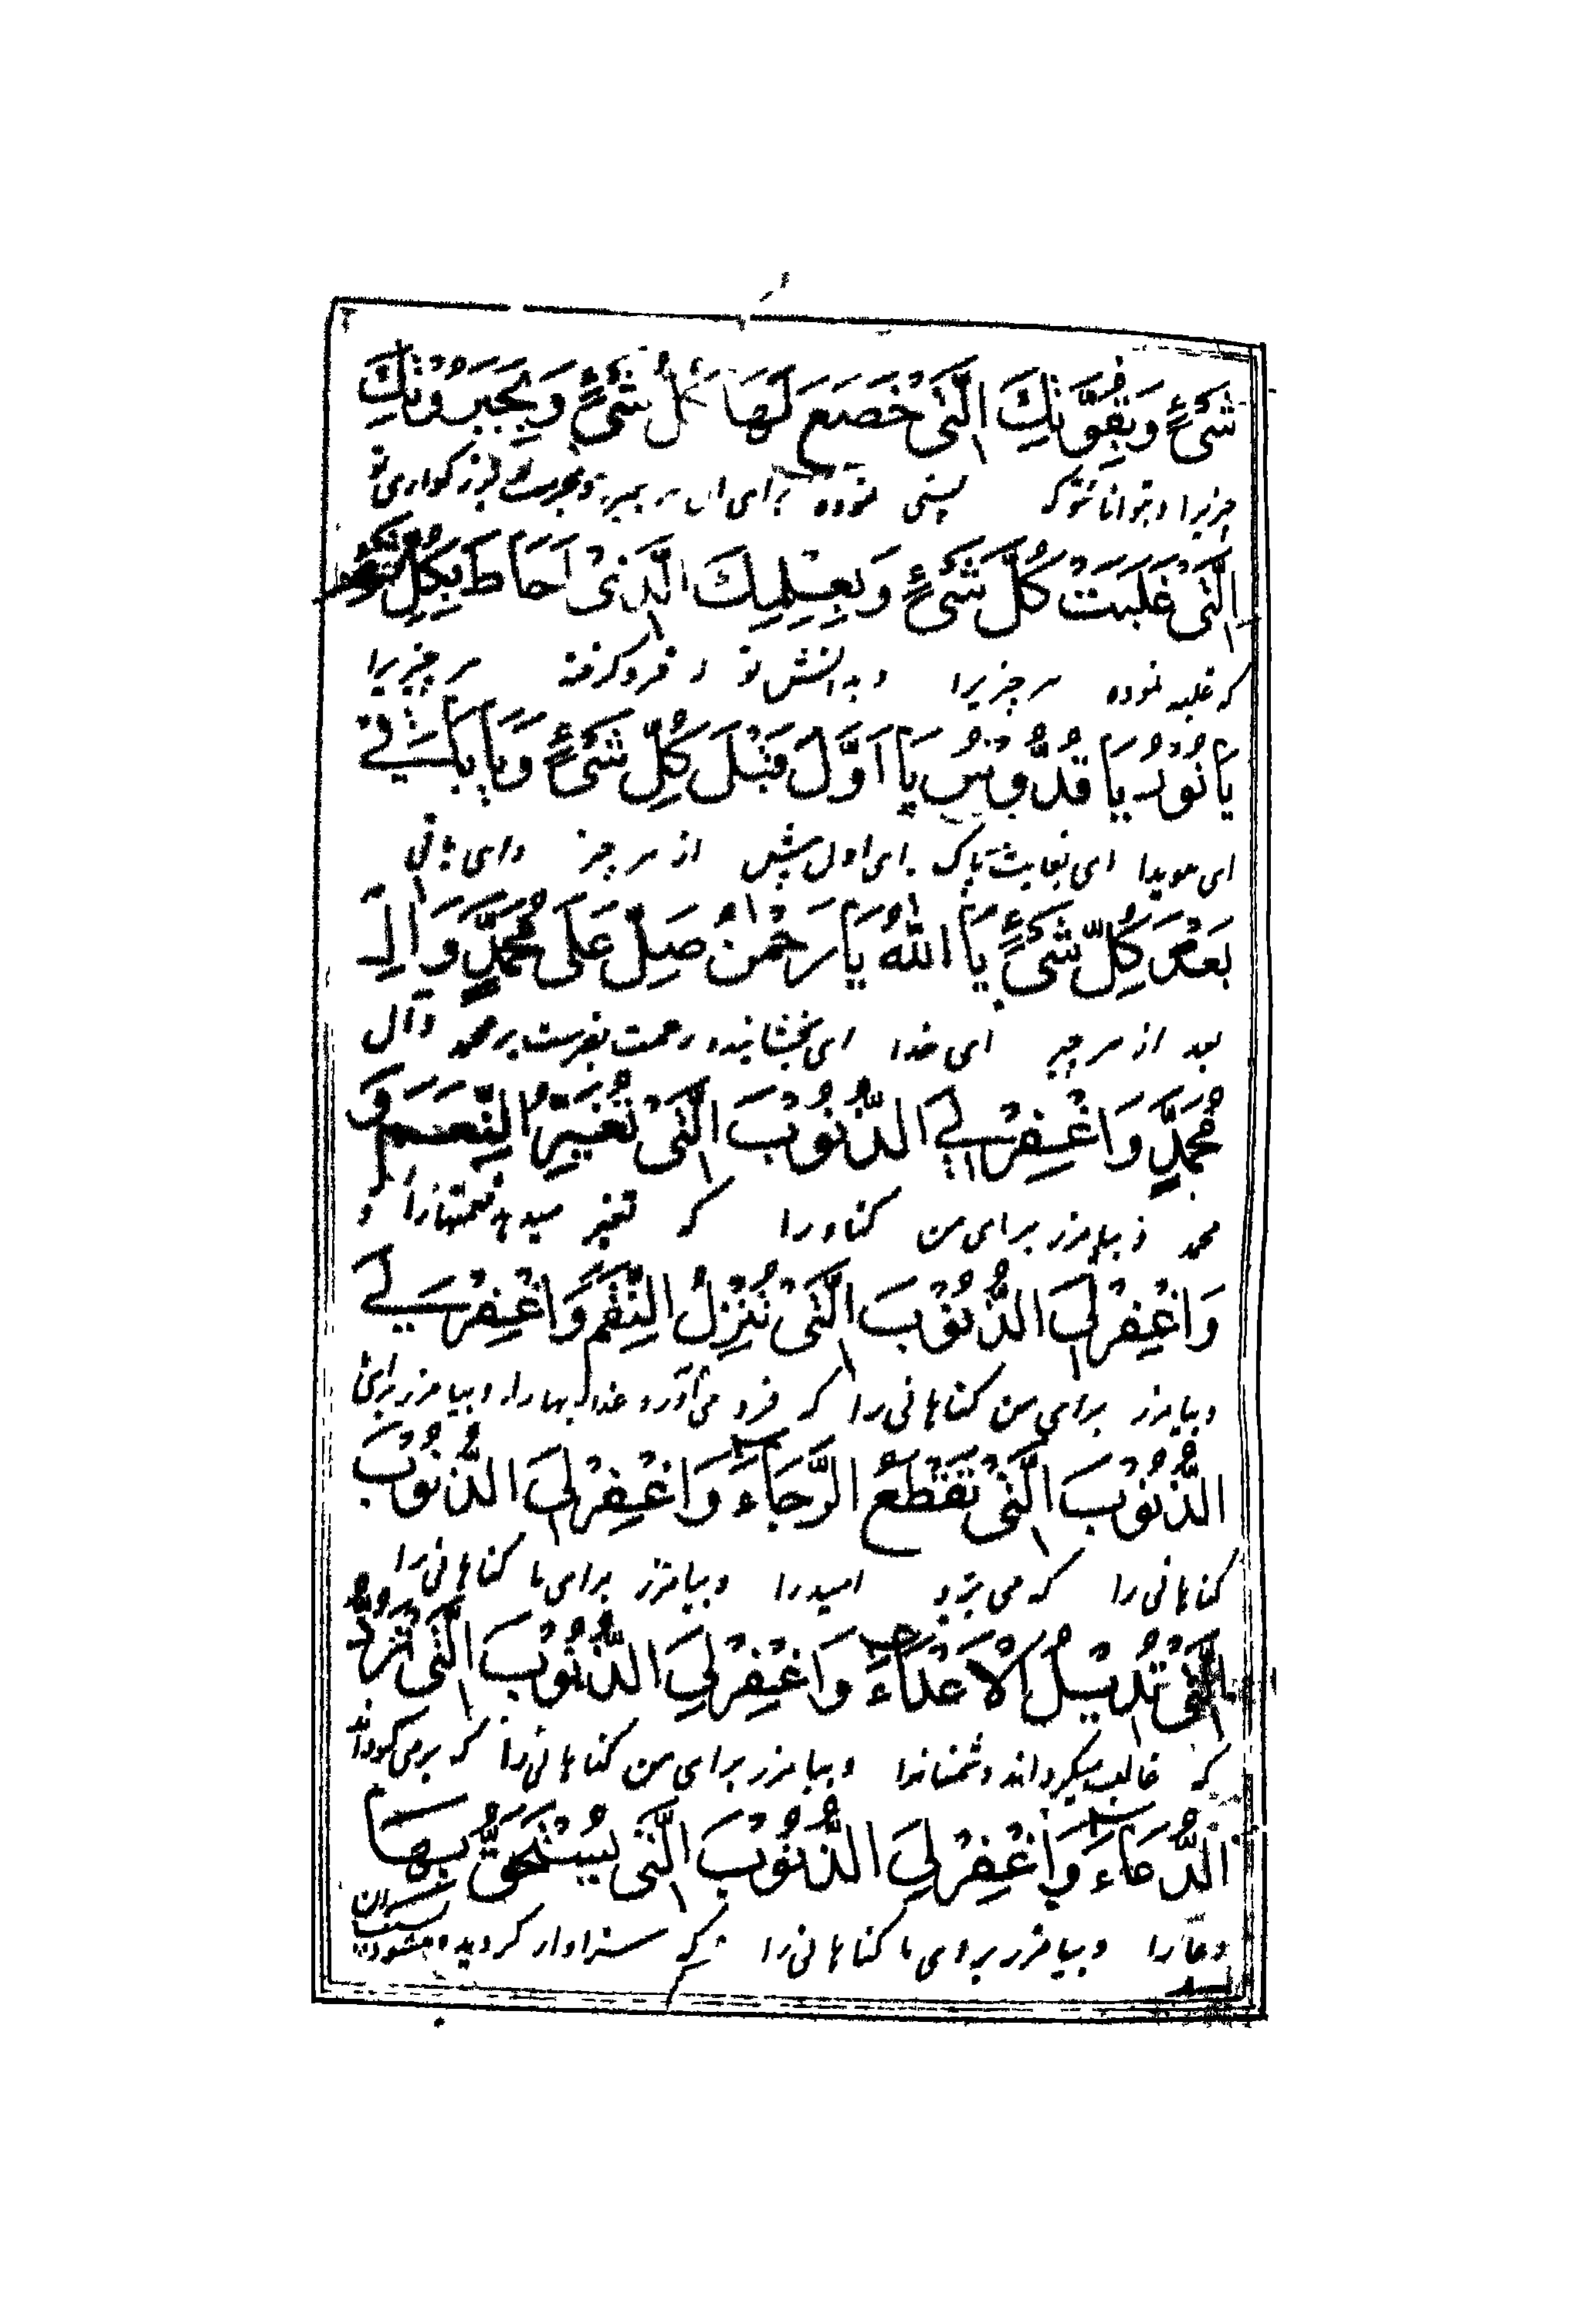 شَیْءٍ وَبِقُوَّتِكَ الَّتِیْ خَضَعَ لَهَا كُلُّ شَیْءٍ وَبِجَبَرُوْتِكَ
چیزیرا و بتوانائی تو که پستی نموده برای آن هر چیز و بجبروت بزرگواری تو
الَّتِیْ غَلَبَتْ كُلَّ شَیْءٍ وَبِعِلْمِكَ الَّذِیْ اَحَاطَ بِكُلِّ شَیْءٍ
که غلبه نموده هر چیزیرا و بدانش تو که فرو گرفته هر چیزیرا
یَا نُوْرُ یَا قُدُّوْسُ یَا اَوَّلَ قَبْلَ كُلِّ شَیْءٍ وَیَا بَاقِیْ
ای هویدا ای بغایت پاک ای اول پیش از هر چیز و ای باقی
بَعْدَ كُلِّ شَیْءٍ یَا اَللهُ یَا رَحْمٰنُ صَلِّ عَلٰی مُحَمَّدٍ وَاٰلِ
بعد از هر چیز ای خدا ای بخشاینده رحمت بفرست بر محمد و آل
مُحَمَّدٍ وَاغْفِرْلِی الذُّنُوْبَ الَّتِیْ تُغَیِّرُ النِّعَمَ وَ
محمد و بیامرز برای من گناه را که تغییر میدهد نعمتهارا و
وَاغْفِرْلِیَ الذُّنُوْبَ الَّتِیْ تُنْزِلُ النِّقَمَ وَاغْفِرْلِی
و بیامرز برای من گناهانی را که فرو می آورد عذابها را و بیامرز برای من
الذُّنُوْبَ الَّتِیْ تَقْطَعُ الرَّجَآءَ وَاغْفِرْلِیَ الذُّنُوْبَ
گناهانی را که می برد امیدرا و بیامرز برای ما گناهانی را
الَّتِیْ تُدِیْلُ الْاَعْدَآءَ وَاغْفِرْلِیَ الذُّنُوْبَ الَّتِیْ تَرُدُّ
که غالب میگرداند دشمنانرا و بیامرز برای من گناهانی را که برمی گرداند
الدُّعَآءَ وَاغْفِرْلِیَ الذُّنُوْبَ الَّتِیْ یُسْتَحَقُّ بِهَا
دعا را و بیامرز برای ما گناهانی را که سزاوار گردیده میشود بسبب آن